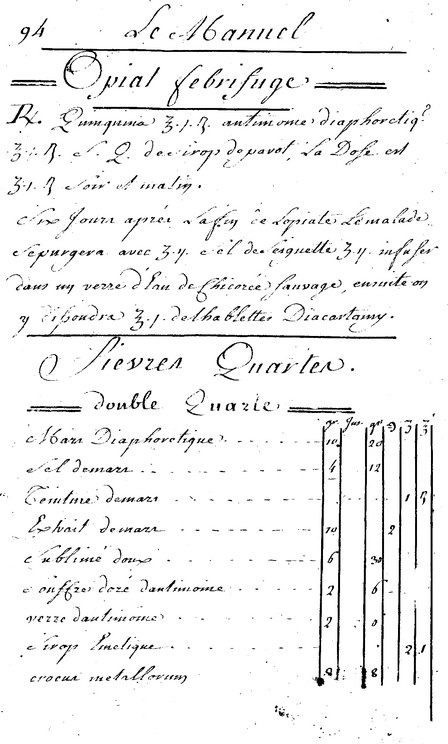 94 Le Manuel
Opiat febrifuge
℞. Quinquina ʒ.1.ß. antimome diaphoretiq.e
ʒ.1.ß. S. Q. de Sirop de pavot, La Dose est
ʒ.1.ß Soir et matin.
Six Jours aprés La fin de Lopiate Le malade
Se purgera avec ʒ.ij. Sel de Seignette ʒ.ij. infuser
dans un verre d'Eau de Chicorée Sauvage, ensuite on
y dissoudra ʒ.j. de thablettes Diacartamy.
Fievres Quartes.
double Quarte
gr Jus. gr ℈ ʒ ʒ
Mars Diaphoretique 10 20
Sel de mars 4 12
Teinture de mars 1 ß
Extrait de mars 10 2
Sublimé doux 6 30
Souffre doré dantimoine 2 6
verre dantimoine 2 0
Sirop Emetique 2 1
crocus metallorum 2 8